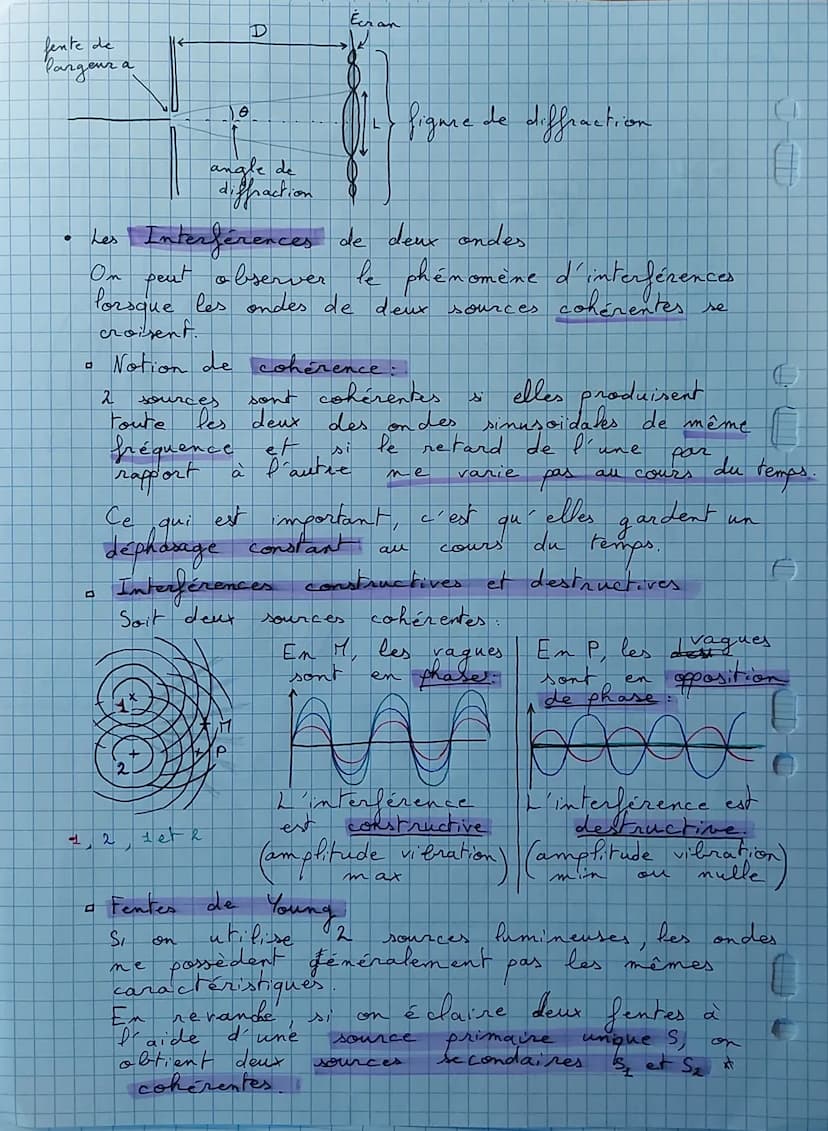 Écran
D
fente de
largeur a
θ
L
figure de diffraction
angle de
diffraction
• Les Interférences de deux ondes
On peut observer le phénomène d'interférences
lorsque les ondes de deux sources cohérentes se
croisent.
▫ Notion de cohérence :
2 sources sont cohérentes si elles produisent
toute les deux des ondes sinusoïdales de même
fréquence et si le retard de l'une par
rapport à l'autre ne varie pas au cours du temps.
Ce qui est important, c'est qu'elles gardent un
déphasage constant au cours du temps.
▫ Interférences constructives et destructives
Soit deux sources cohérentes :
1
2
M
P
1, 2, 1 et 2
En M, les vagues
sont en phase :
L'interférence
est constructive
(amplitude vibration)
max
En P, les vagues
sont en opposition
de phase :
L'interférence est
destructive.
(amplitude vibration)
min ou nulle
▫ Fentes de Young
Si on utilise 2 sources lumineuses, les ondes
ne possèdent généralement pas les mêmes
caractéristiques.
En revanche, si on éclaire deux fentes à
l'aide d'une source primaire unique S, on
obtient deux sources secondaires S₁ et S₂ *
cohérentes.